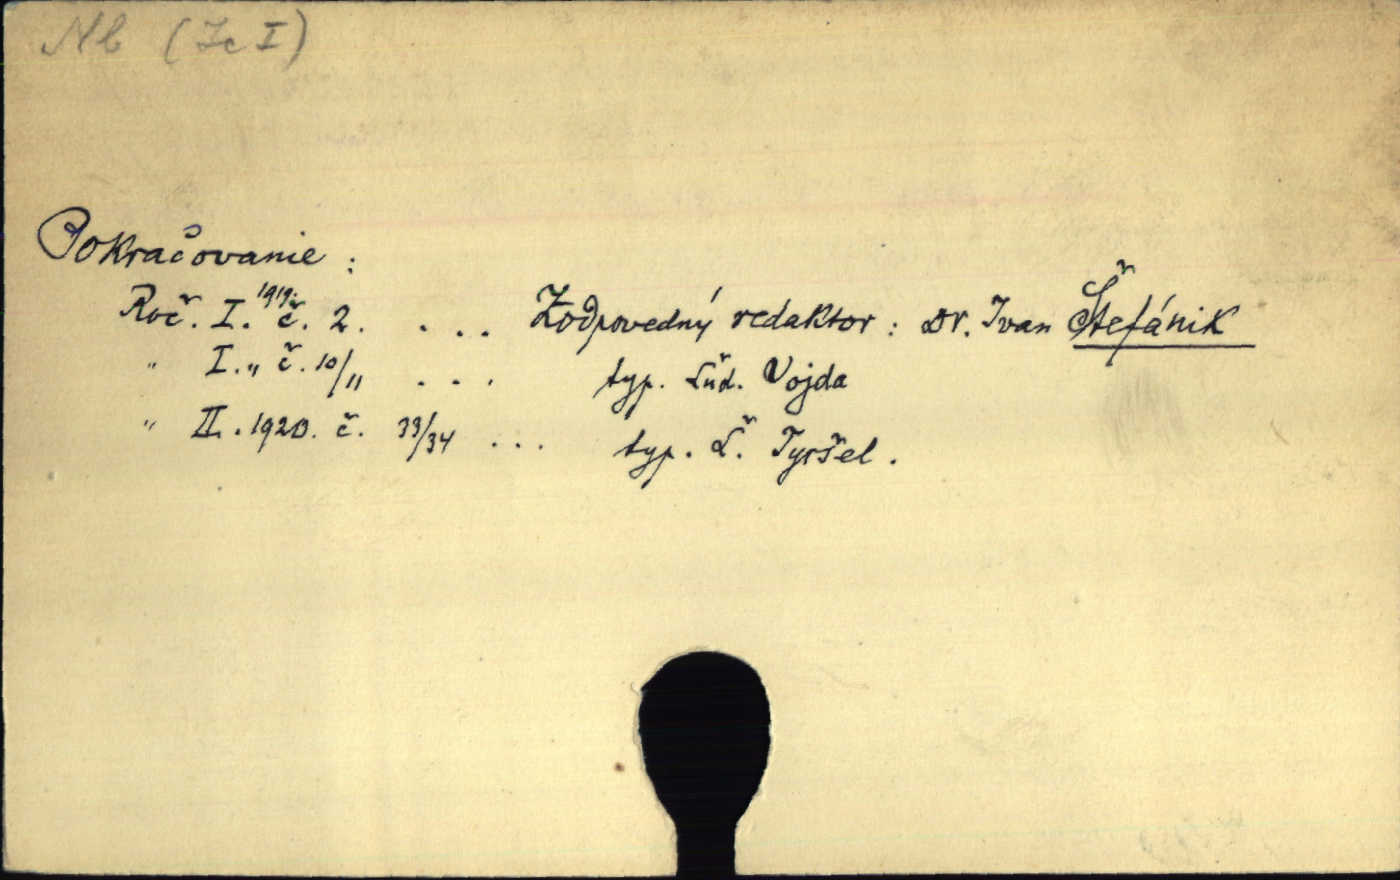 Nb (Ic I)
Pokračovanie:
Roč. I. 1919. č. 2. ... Zodpovedný redaktor: Dr. Ivan Štefánik
" I. " č. 10/11 ... typ. Ľud. Vojda
" II. 1920. č. 33/34 ... typ. Ľ. Tyršel.